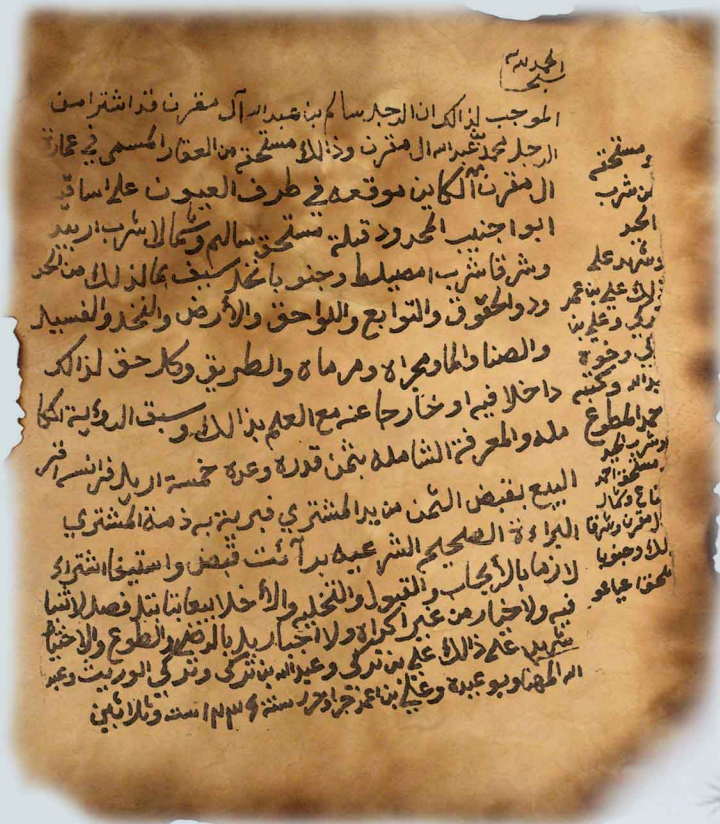 الحمد لله
سبحا
الموجب لذالك ان الرجل سالم بن عبد الله آل مقرن قد اشترا من
الرجل محمد بن عبد الله ال مقرن وذالك مستحقه من العقار المسمى في عمارة
ال مقرن الكاين موقعه في طرف العيون على ساقي
ابوا جنيب المحدود قبلة مستحق سالم وشمالا شرب
وشرقا شرب امصيلط وجنوبا نخل سيف بما لذلك من الحد
ود والحقوق والتوابع واللواحق والأرض والنخل والفسيل
والصنا والما ومجراه ومرماه والطريق وكل حق لذالك
داخلا فيه او خارجا عنه مع العلم بذالك وسبق الرؤية الكا
مله والمعرفة الشامله بثمن قدره وعده خمسة اريل فرانسه
البيع بقبض الثمن من يد المشتري فبرية به ذمة المشتري
البراءة الصحيحه الشرعيه برآئت قبض واستيفا اشتراء
لازما بالأيجاب والقبول والتخليه والأخلا بيعا بتا بتل فصل لا شيا
فيه ولا خيار من غير اكراه ولا اجبار بل بالرضى والطوع والاختيا
شهد على ذالك علي بن تركي وعبد الله بن تركي وتركي الوريث وعبد
الله المهنا وبو عبيده وعلي بن اعمر حرر سنة ١٣٣٦ ست وثلاثين
ومستحقه
من شرب
الجد
وشهد على
ذلك علي بن عمر
تركي وعلي بن
وخوه
وكتبه
حمد المطوع
وشرب الجد
مستحق احمد
وشمال
ال مقرن وشرقا
لك وجنوبا